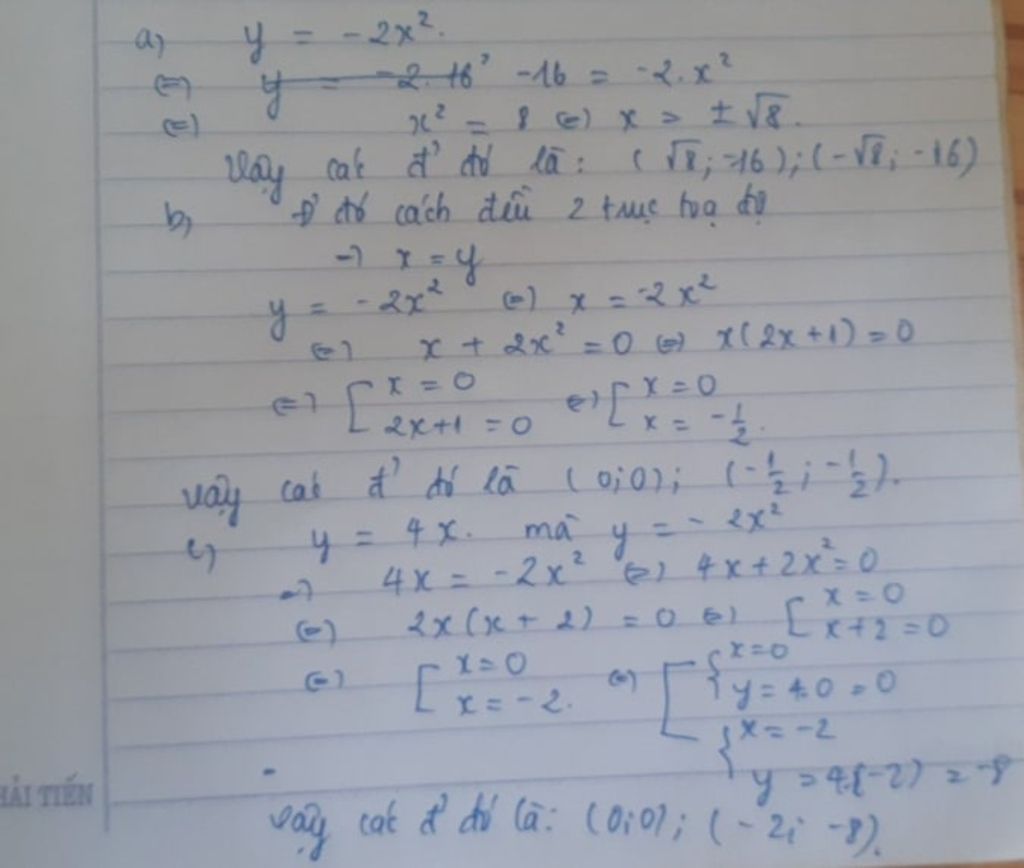 a) y = -2x².
(=) y = -2.16² -16 = -2.x²
(=) x² = 8 (=) x = ±√8.
Vậy các đ' đó là: (√8; -16); (-√8; -16)
b) Đ' đó cách đều 2 trục toạ độ
→ x = y
y = -2x² (=) x = -2x²
(=) x + 2x² = 0 (=) x(2x+1) = 0
(=) [ x = 0 (=) [ x = 0
2x+1 = 0 x = -1/2.
Vậy các đ' đó là (0;0); (-1/2; -1/2).
c) y = 4x. mà y = -2x²
→ 4x = -2x² (=) 4x + 2x² = 0
(=) 2x(x+2) = 0 (=) [ x = 0
x+2 = 0
(=) [ x = 0 (=) [ { x = 0
x = -2. y = 4.0 = 0
{ x = -2
y = 4.(-2) = -8
HẢI TIẾN
Vậy các đ' đó là: (0;0); (-2; -8).